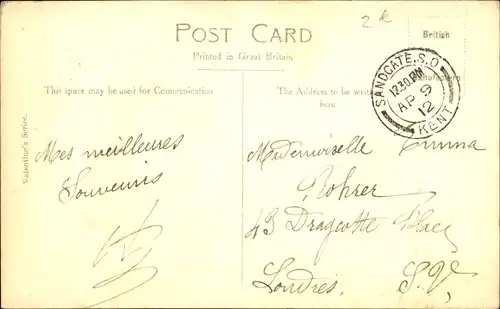 2 €
POST CARD
Printed in Great Britain
British
Manufacture
SANDGATE.S.O
12.30 PM
AP 9
12
KENT
This space may be used for Communication
The Address to be wri
here
Valentine's Series.
Mes meilleures
Souvenirs
Mademoiselle Emma
Rohrer
43 Dragcotte Place
Londres. S.W.